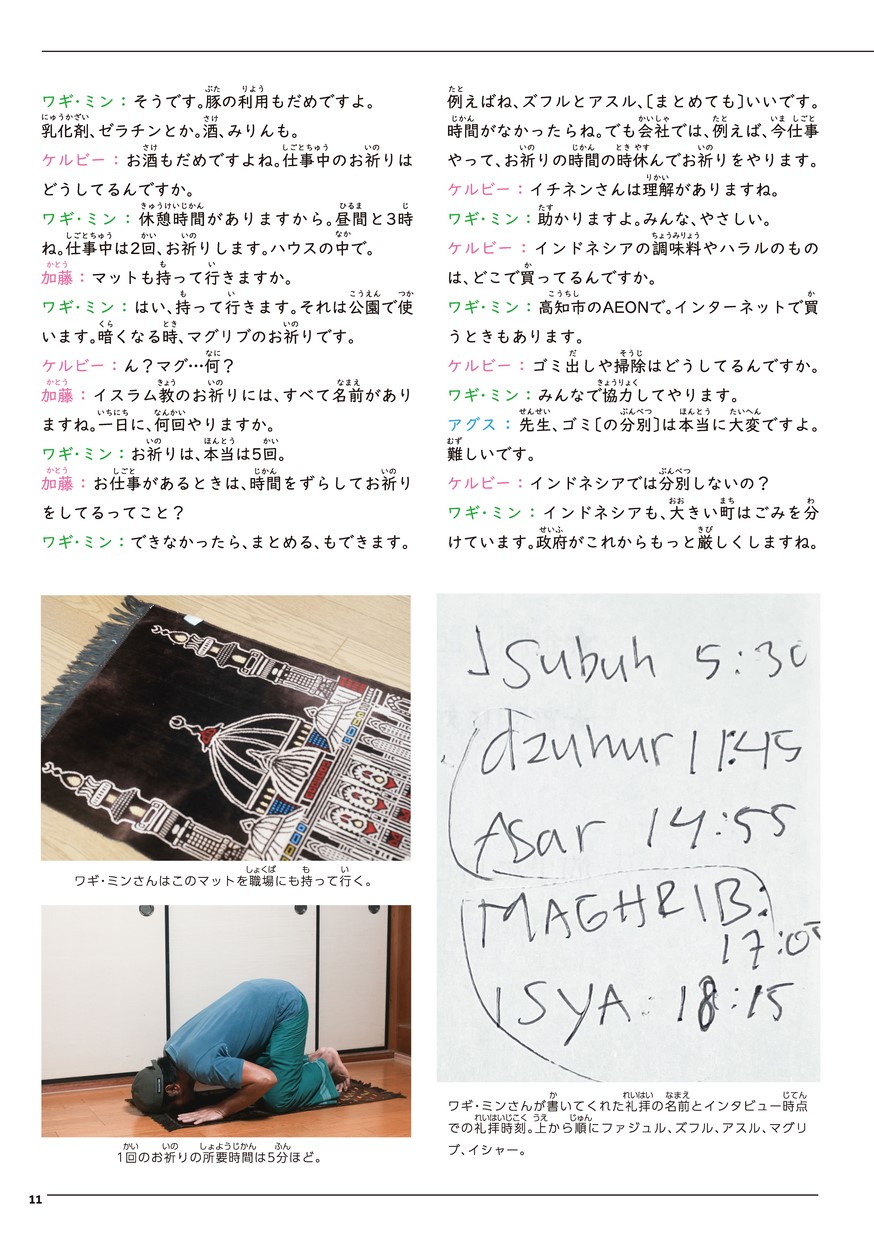 ワギ・ミン：そうです。豚の利用もだめですよ。
乳化剤、ゼラチンとか。酒、みりんも。
ケルビー：お酒もだめですよね。仕事中のお祈りは
どうしてるんですか。
ワギ・ミン：休憩時間がありますから。昼間と3時
ね。仕事中は2回、お祈りします。ハウスの中で。
加藤：マットも持って行きますか。
ワギ・ミン：はい、持って行きます。それは公園で使
います。暗くなる時、マグリブのお祈りです。
ケルビー：ん？マグ…何？
加藤：イスラム教のお祈りには、すべて名前があり
ますね。一日に、何回やりますか。
ワギ・ミン：お祈りは、本当は5回。
加藤：お仕事があるときは、時間をずらしてお祈り
をしてるってこと？
ワギ・ミン：できなかったら、まとめる、もできます。
例えばね、ズフルとアスル、〔まとめても〕いいです。
時間がなかったらね。でも会社では、例えば、今仕事
やって、お祈りの時間の時休んでお祈りをやります。
ケルビー：イチネンさんは理解がありますね。
ワギ・ミン：助かりますよ。みんな、やさしい。
ケルビー：インドネシアの調味料やハラルのもの
は、どこで買ってるんですか。
ワギ・ミン：高知市のAEONで。インターネットで買
うときもあります。
ケルビー：ゴミ出しや掃除はどうしてるんですか。
ワギ・ミン：みんなで協力してやります。
アグス：先生、ゴミ〔の分別〕は本当に大変ですよ。
難しいです。
ケルビー：インドネシアでは分別しないの？
ワギ・ミン：インドネシアも、大きい町はごみを分
けています。政府がこれからもっと厳しくしますね。
ワギ・ミンさんはこのマットを職場にも持って行く。
1回のお祈りの所要時間は5分ほど。
Subuh 5:30
dzuhur 11:45
Asar 14:55
MAGHRIB:
ISYA: 18:15
ワギ・ミンさんが書いてくれた礼拝の名前とインタビュー時点
での礼拝時刻。上から順にファジュル、ズフル、アスル、マグリ
ブ、イシャー。
11